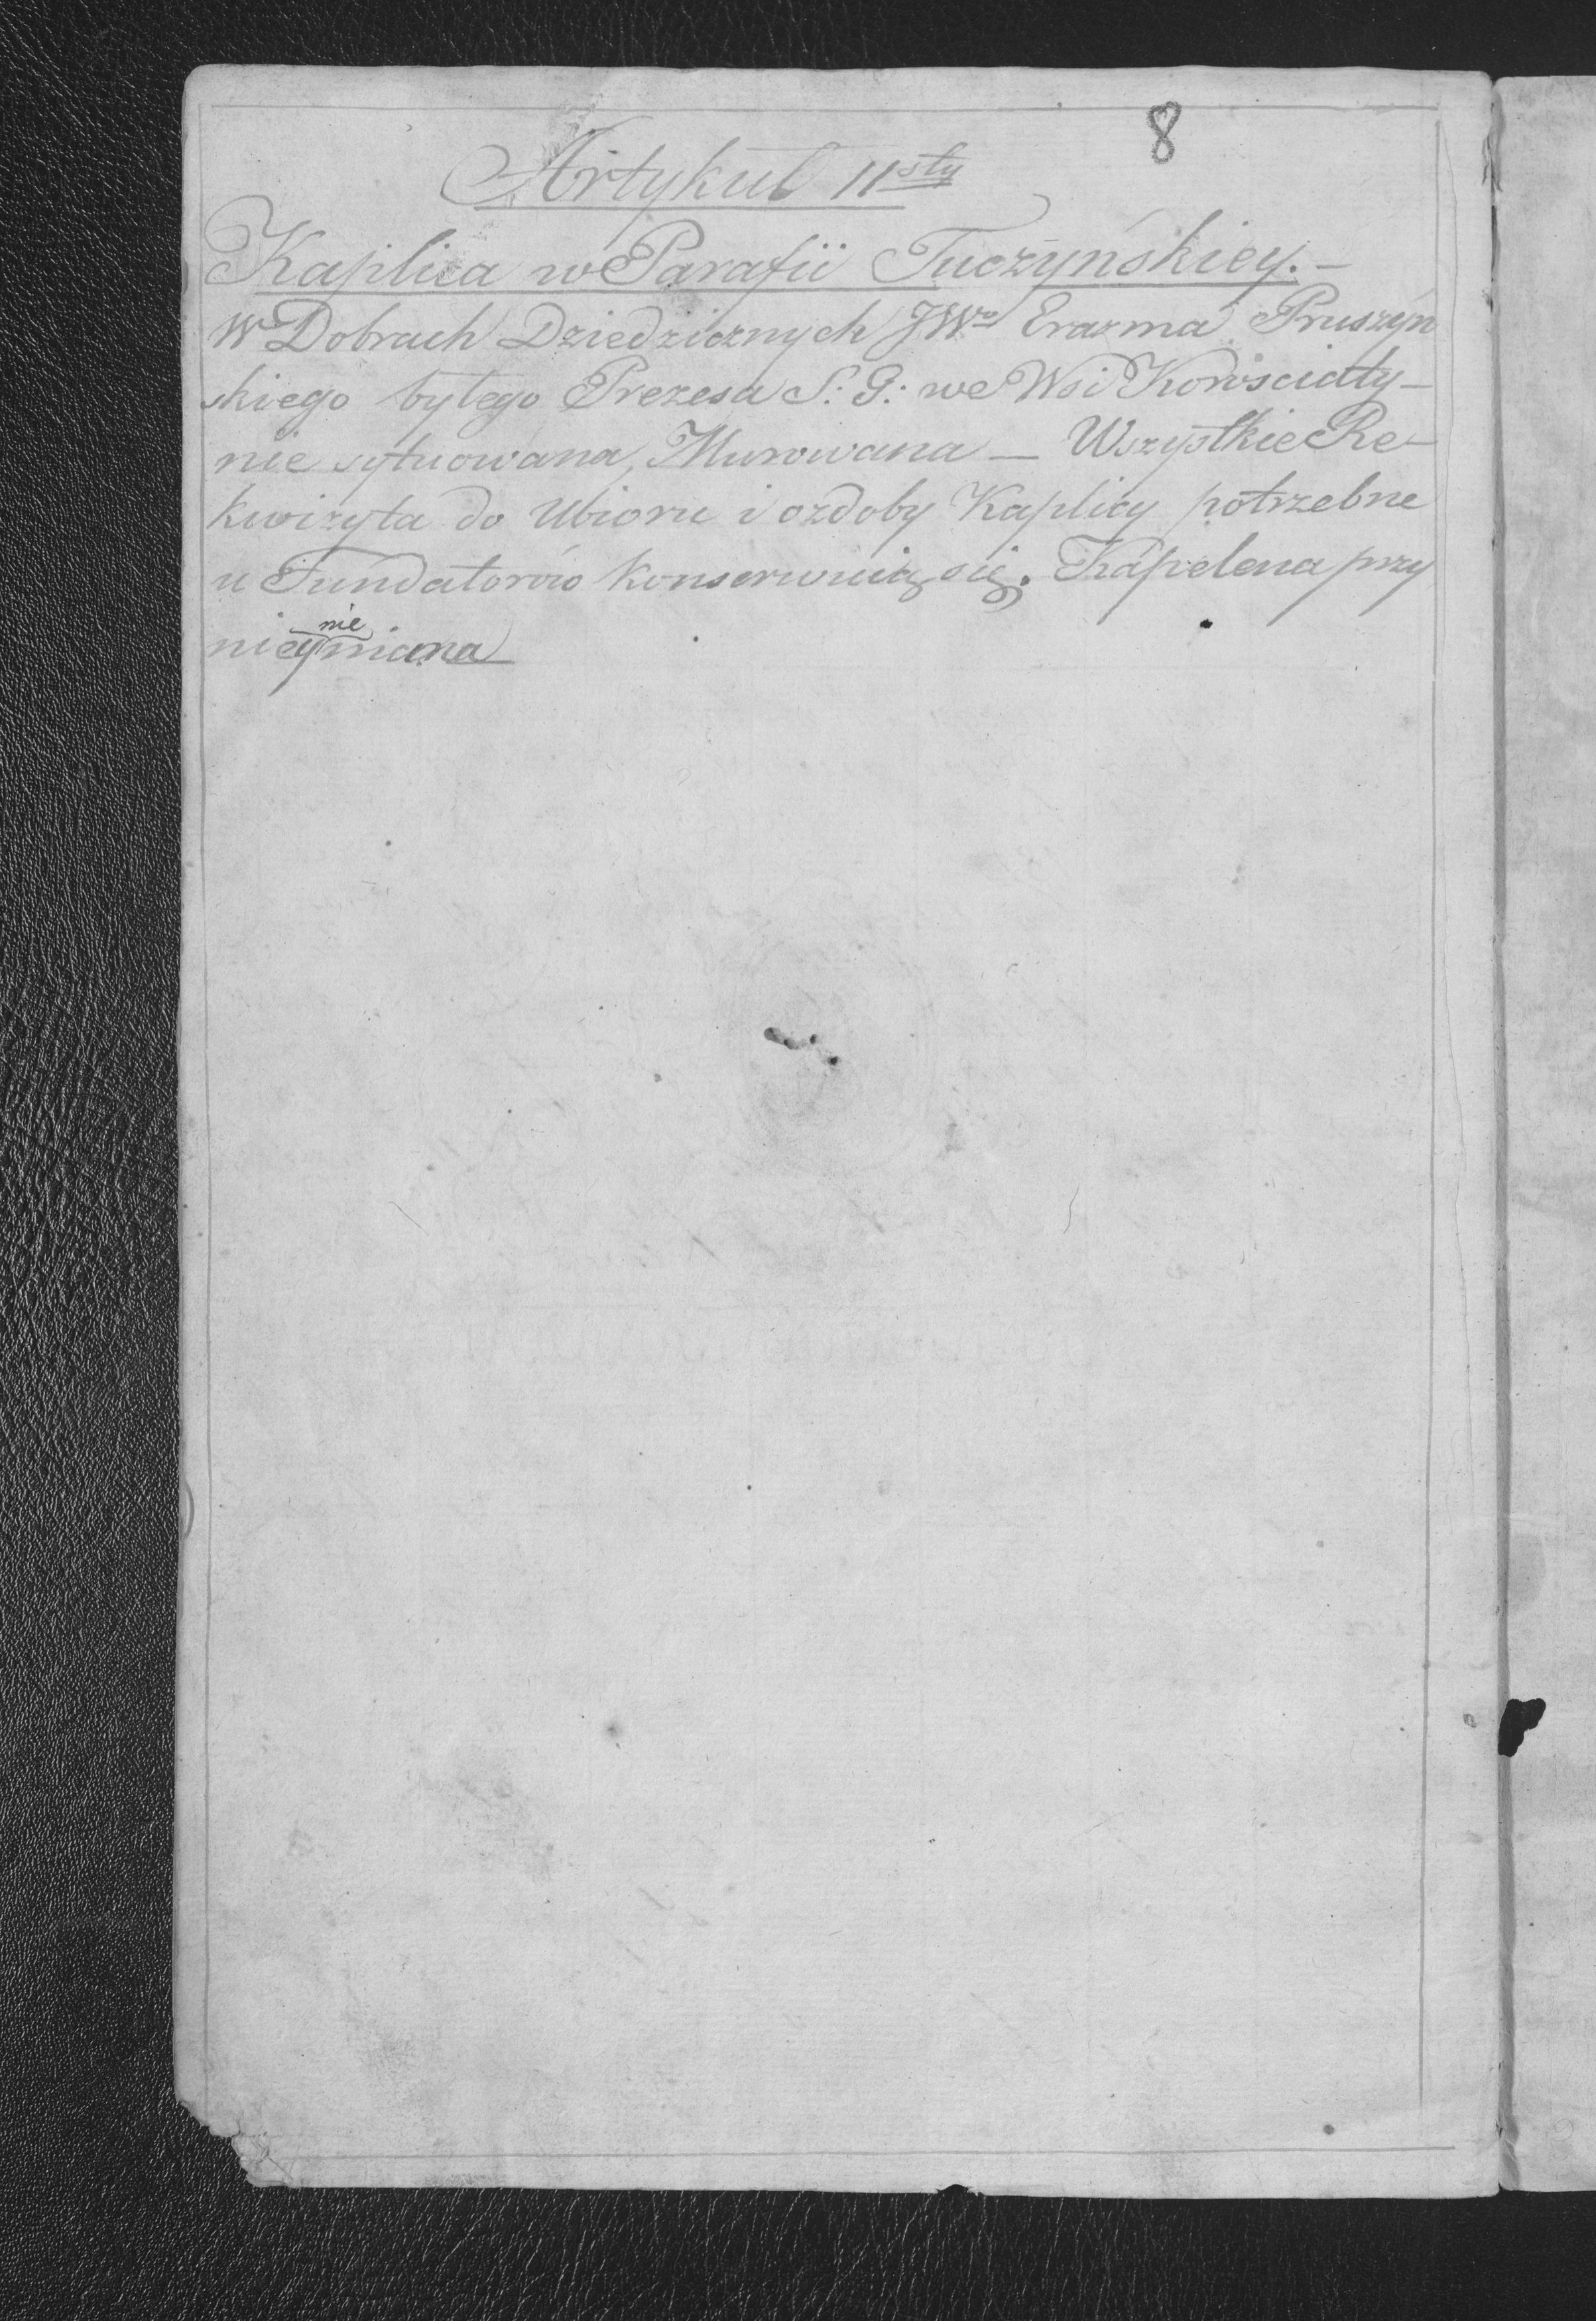 8
Artykuł 11sty
Kaplica w Parafii Tuczyńskiey. —
W Dobrach Dziedzicznych JWo Erazma Pruszyń
skiego byłego Prezesa S: G: we Wsi Korościaty—
nie sytuowana, Murowana — Wszystkie Re—
kwizyta do Ubioru i ozdoby Kaplicy potrzebne
u Fundatorów konserwuią się. Kapelena przy
niey nie miana